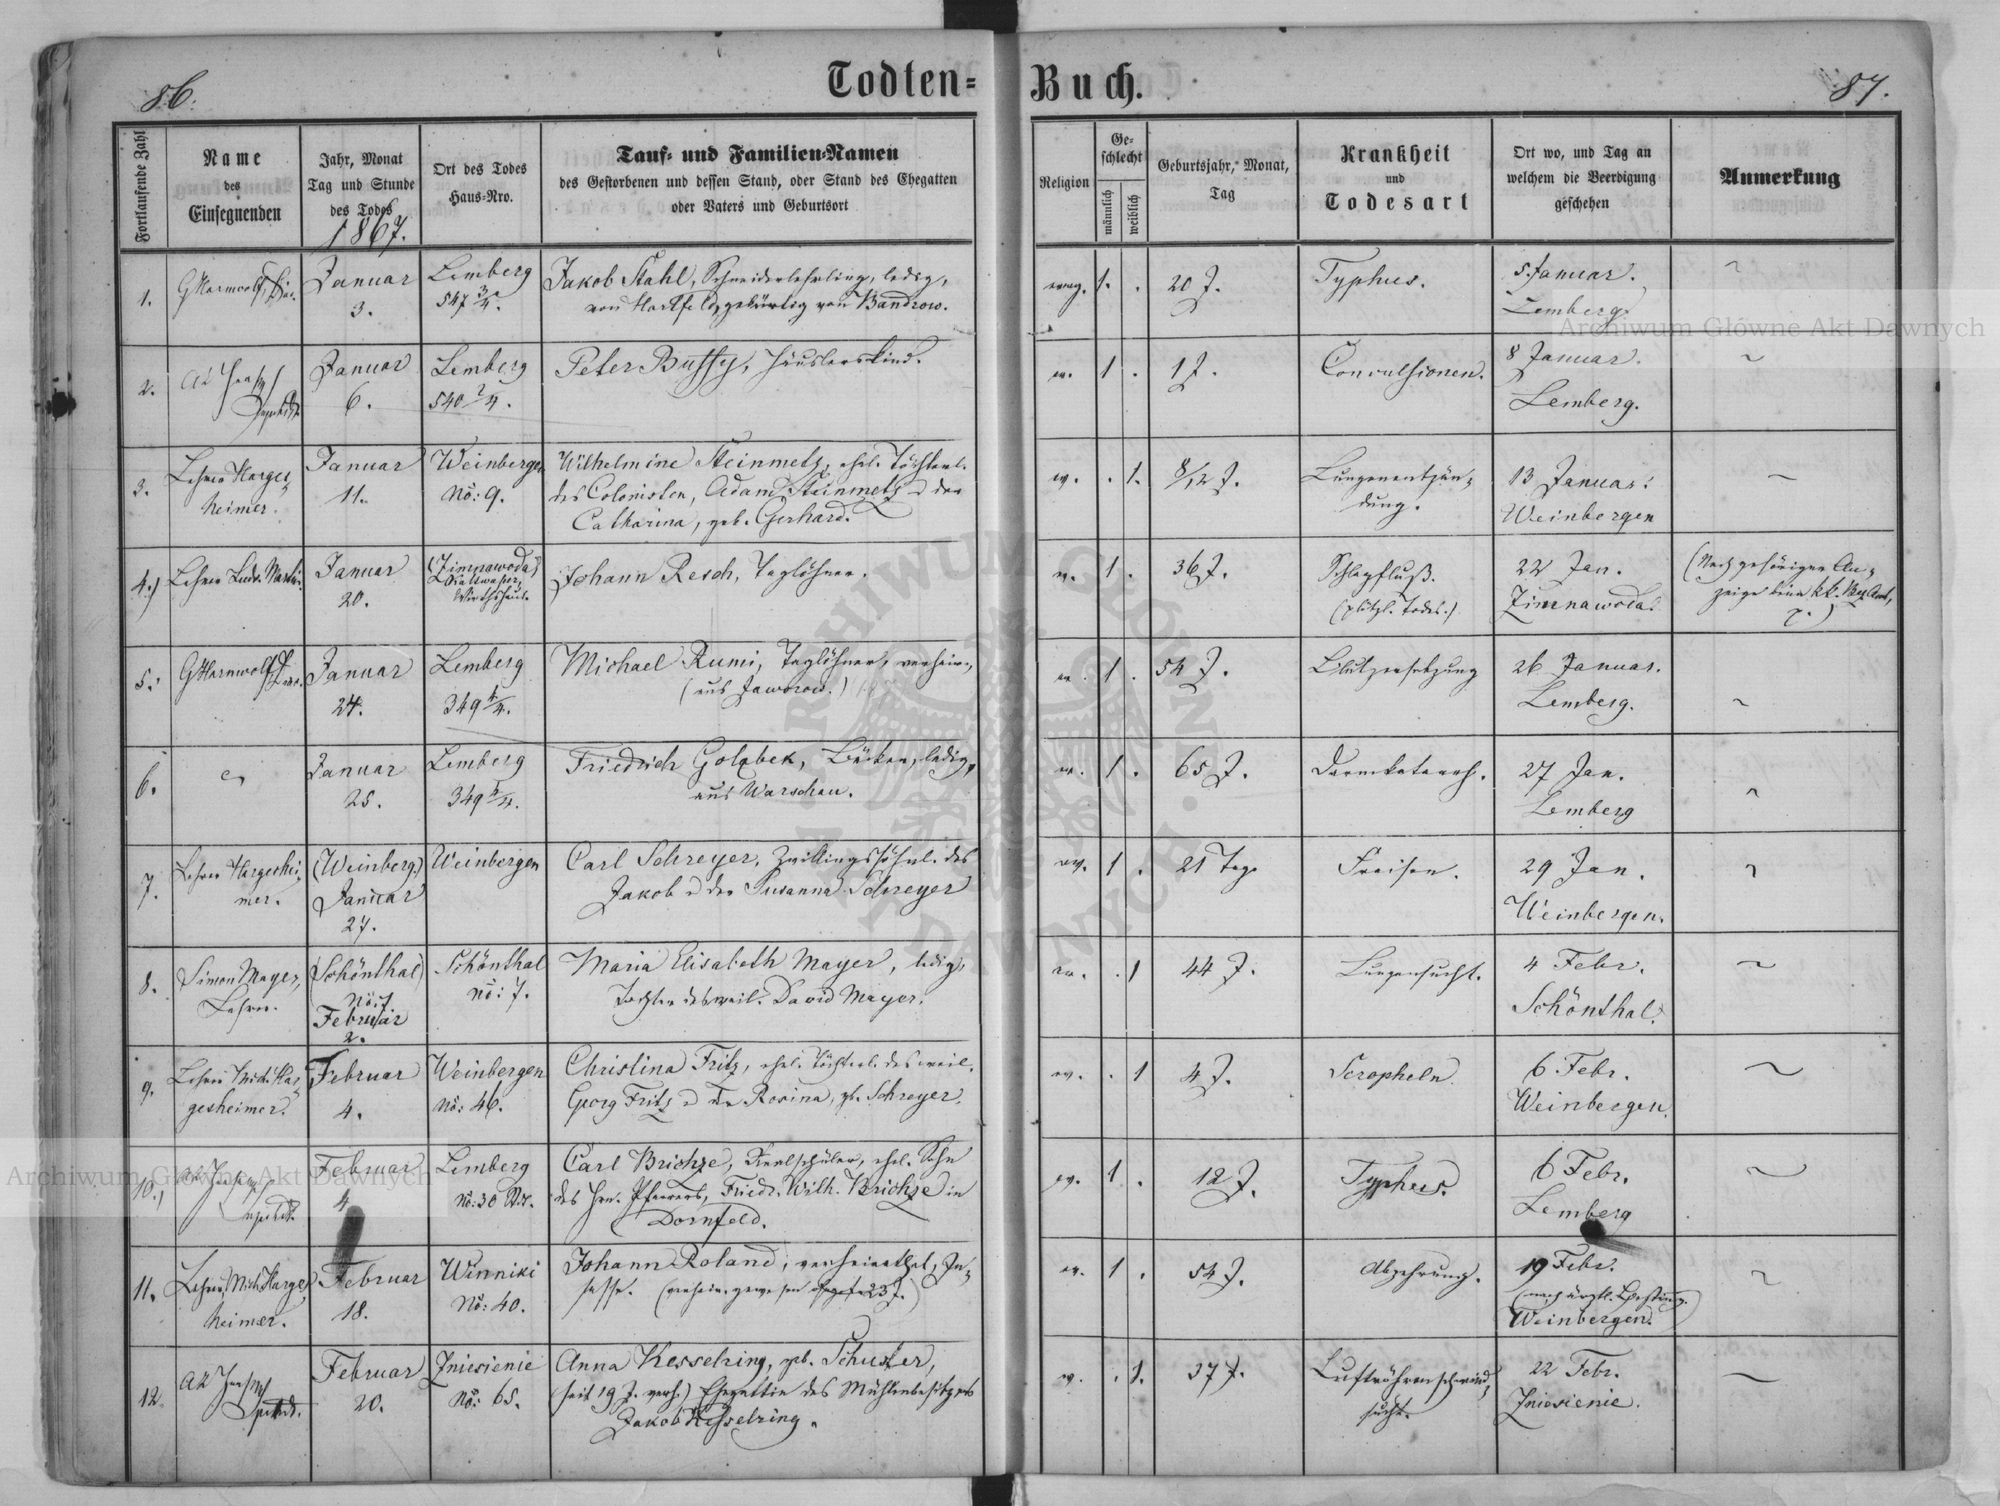 86.
Todten-
Fortlaufende Zahl
Name
des
Einsegnenden
Jahr, Monat
Tag und Stunde
des Todes
1867.
Ort des Todes
Haus-Nro.
Tauf- und Familien-Namen
des Gestorbenen und dessen Stand, oder Stand des Ehegatten
oder Vaters und Geburtsort
1.
Januar
3.
Lemberg
547 3/4.
Jakob Stahl, Schneiderlehrling, ledig,
von Hartfeld, gebürtig von Bandrow.
2.
Januar
6.
Lemberg
540 2/4.
Peter Buffy, Häuslerskind.
3.
Lehrer Harges-
heimer.
Januar
11.
Weinbergen
No: 9.
Wilhelmine Steinmetz, ehel. Töchterl.
des Colonisten, Adam Steinmetz u der
Catharina, geb. Gerhard.
4.)
Lehrer Ludw. Martin.
Januar
20.
(Zimnawoda)
Kaltwasser,
Wirthshaus.
Johann Resch, Taglöhner.
5.
Januar
24.
Lemberg
349 4/4.
Michael Rumi, Taglöhner, verheir.,
(aus Jaworow.)
6.
Januar
25.
Lemberg
349 4/4.
Friedrich Golzbek, Bäcker, ledig,
aus Warschau.
7.
Lehrer Hargeshei-
mer.
(Weinberg.)
Januar
27.
Weinbergen
Carl Schreyer, Zwillingssöhnl. des
Jakob u der Susanna Schreyer
8.
Simon Mayer,
Lehrer.
(Schönthal)
No: 7.
Februar
2.
Schönthal
No: 7.
Maria Elisabeth Mayer, ledig,
Tochter des weil. David Mayer.
9.
Lehrer Mich. Har-
gesheimer.
Februar
4.
Weinbergen
No: 46.
Christina Fritz, ehel. Töchterl. des weil.
Georg Fritz u der Rosina, gb. Schreyer.
10.)
Februar
4
Lemberg
No: 30
Carl Brichze, Realschüler, ehel. Sohn
des Hrn. Pfarrers, Friedr. Wilh. Brichze in
Dornfeld.
11.
Lehrer Mich. Harges-
heimer.
Februar
18.
Winniki
No: 40.
Johann Roland, verheirathet, In-
sasse. (verheir. gewesen 23 J.)
12.
Februar
20.
Zniesienie
No: 65.
Anna Kesselring, geb. Schuster,
(seit 19 J. verh.) Ehegattin des Mühlenbesitzers
Jakob Kesselring.
Buch.
87.
Religion
Ge-
schlecht
männlich
weiblich
Geburtsjahr, Monat,
Tag
Krankheit
und
Todesart
Ort wo, und Tag an
welchem die Beerdigung
geschehen
Anmerkung
evang.
1.
.
20 J.
Typhus.
5. Januar.
Lemberg.
ev.
1
.
1 J.
Convulsionen.
8 Januar.
Lemberg.
ev.
.
1.
8/12 J.
Lungenentzün-
dung.
13 Januar.
Weinbergen
ev.
1
.
36 J.
Schlagfluß.
(plötzl. Todes.)
22 Jan.
Zimnawoda.
(Nach gehöriger An-
zeige beim kk. Bez. Amt,
ev.
1
.
54 J.
Blutzersetzung
26 Januar.
Lemberg.
ev.
1
.
65 J.
Darmkatarrh.
27 Jan.
Lemberg
ev.
1
.
21 Tage
Fraisen.
29 Jan.
Weinbergen.
ev.
.
1
44 J.
Lungensucht.
4 Febr.
Schönthal.
ev.
.
1
4 J.
Scropheln.
6 Febr.
Weinbergen.
ev.
1
.
12 J.
Typhus.
6 Febr.
Lemberg
ev.
1
.
54 J.
Abzehrung.
19 Febr.
Weinbergen.
ev.
.
1.
37 J.
Luftröhrenschwind-
sucht.
22 Febr.
Zniesienie.
Archiwum Główne Akt Dawnych
Archiwum Główne Akt Dawnych
ARCHIWUM GŁÓWNE AKT DAWNYCH